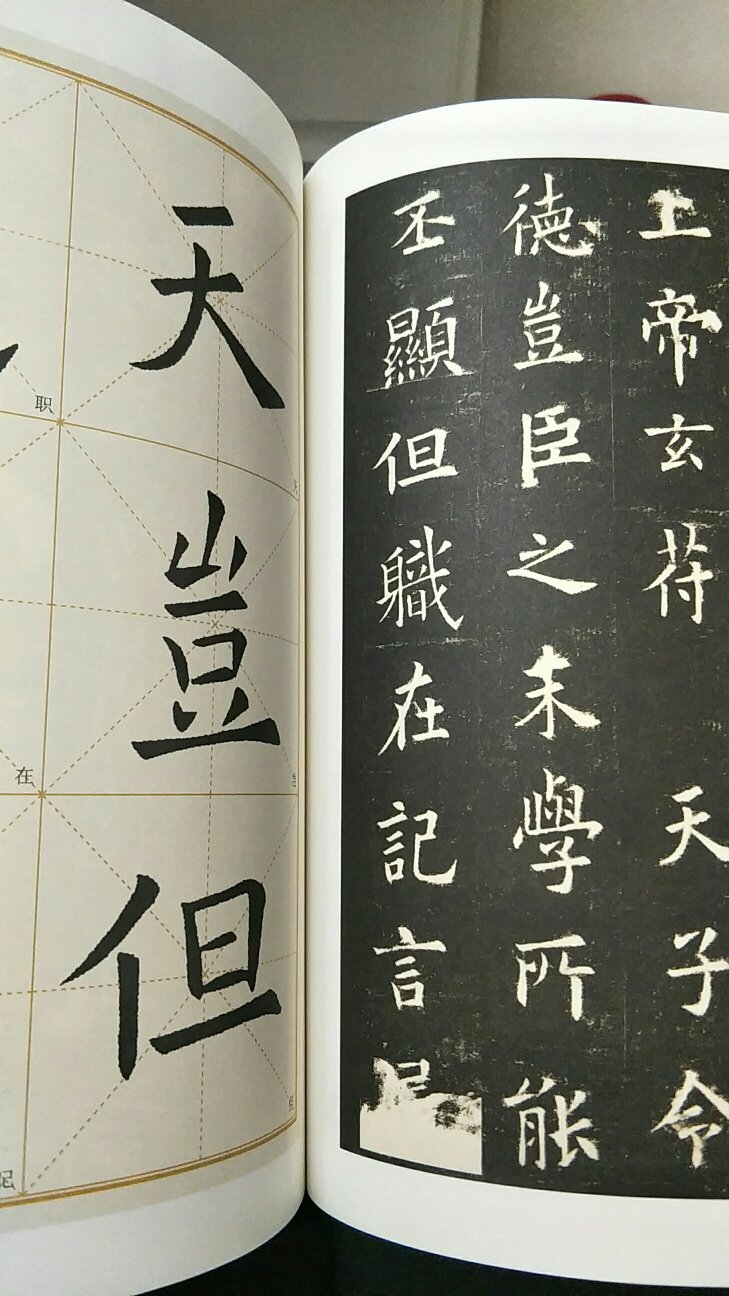 天
豈
但
职
在
记
上帝玄苻 天子令
德豈臣之末學所能
丕顯但職在記言